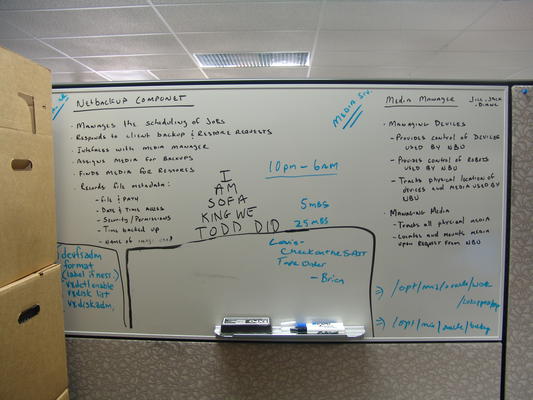 NetBackup Componet
- Manages the scheduling of Jobs
- Responds to client backup & Restore requests
- Intefaces with media manager
- Assigns media for backups
- Finds media for restores
- Records file metadata:
- File & Path
- Date & Time Access
- Security/Permissions
- Time backed up
- Name of
Media Srv.
10pm - 6am
5 MBS
25 MBS
I
AM
SOFA
KING WE
TODD DID
Louis-
Check on the SAIT
Tape Order
- Brian
devfsadm
format
(label if ness.)
vxdctl enable
vxdisk list
vxdiskadm
Media Manager
Jill, Jack
Diane
- Managing Devices
- Provides control of Devices
used by NBU
- Provides control of robots
used by NBU
- Tracks physical location of
devices and media used by
NBU
- Managing Media
- Tracks all physical media
- Locates and mounts media
upon request from NBU